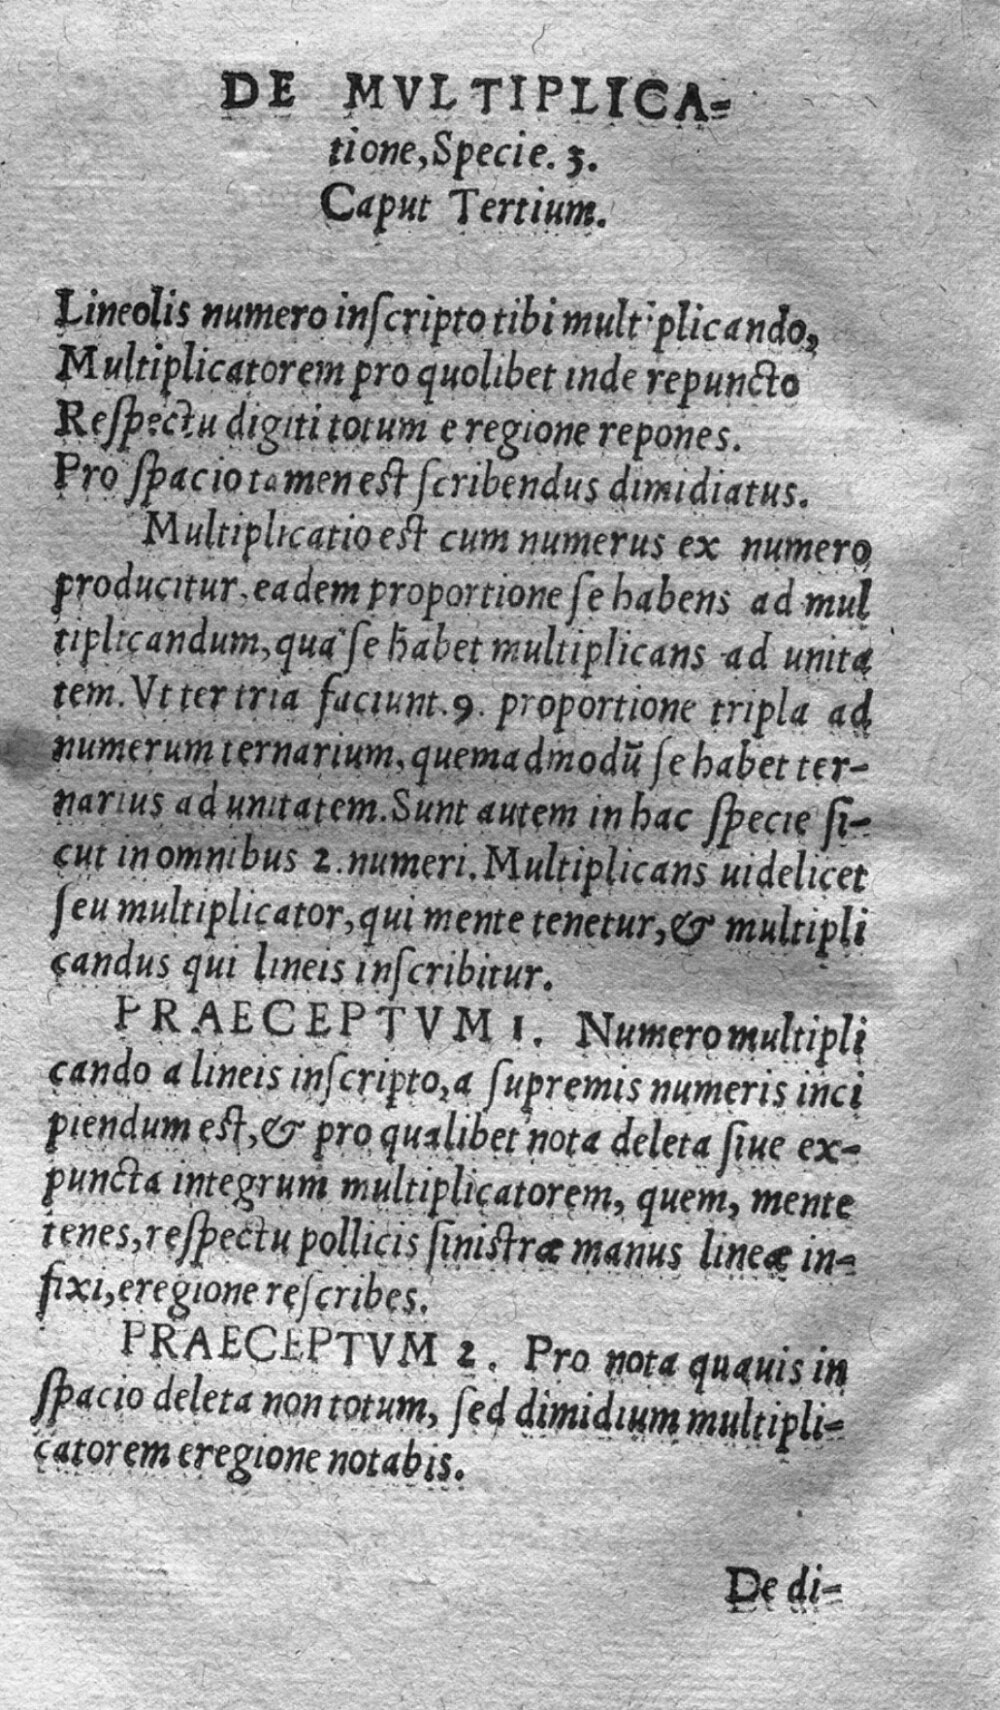 DE MVLTIPLICA-
tione, Specie. 3.
Caput Tertium.
Lineolis numero inſcripto tibi multiplicando,
Multiplicatorem pro quolibet inde repuncto
Reſpectu digiti totum e regione repones.
Pro ſpacio tamen est ſcribendus dimidiatus.
Multiplicatio est cum numerus ex numero
producitur, eadem proportione ſe habens ad mul
tiplicandum, qua ſe habet multiplicans ad unita
tem. Vt ter tria faciunt. 9. proportione tripla ad
numerum ternarium, quemadmodū ſe habet ter-
narius ad unitatem. Sunt autem in hac ſpecie ſi-
cut in omnibus 2. numeri. Multiplicans uidelicet
ſeu multiplicator, qui mente tenetur, & multipli
candus qui lineis inſcribitur.
PRAECEPTVM 1. Numero multipli
cando a lineis inſcripto, a ſupremis numeris inci
piendum est, & pro qualibet nota deleta ſiue ex-
puncta integrum multiplicatorem, quem, mente
tenes, reſpectu pollicis ſinistræ manus lineæ in-
fixi, eregione reſcribes.
PRAECEPTVM 2. Pro nota quauis in
ſpacio deleta non totum, ſed dimidium multipli-
catorem eregione notabis.
De di-